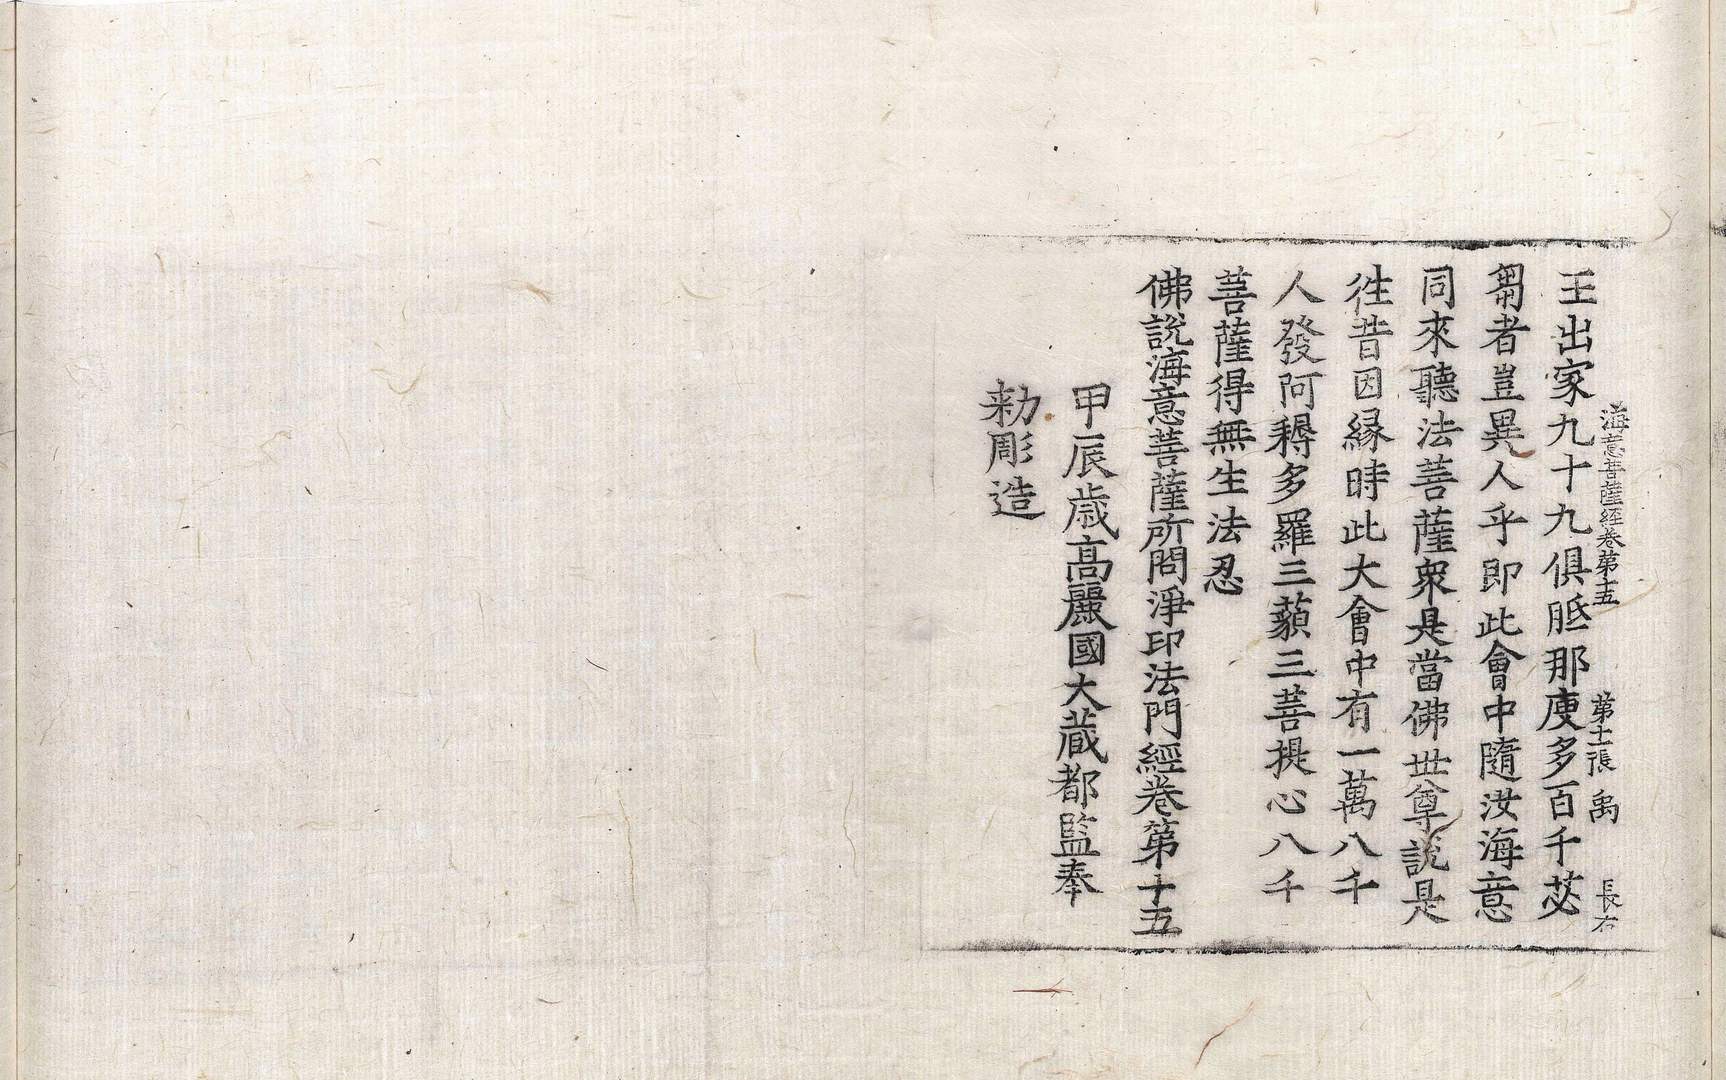 海意菩薩經卷第十五 第十二張 禹 長右
王出家九十九俱胝那庾多百千苾
芻者豈異人乎即此會中隨汝海意
同來聽法菩薩衆是當佛世尊說是
往昔因縁時此大會中有一萬八千
人發阿耨多羅三藐三菩提心八千
菩薩得無生法忍
佛說海意菩薩所問淨印法門經卷第十五
甲辰歲高麗國大藏都監奉
勅彫造